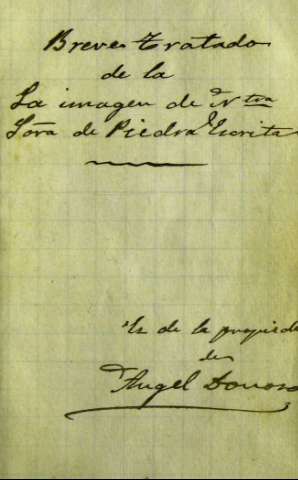 Breve Tratado
de la
La imagen de Ntra
Sōra de Piedra Escrita
Es de la propieda
de
Angel Donoso